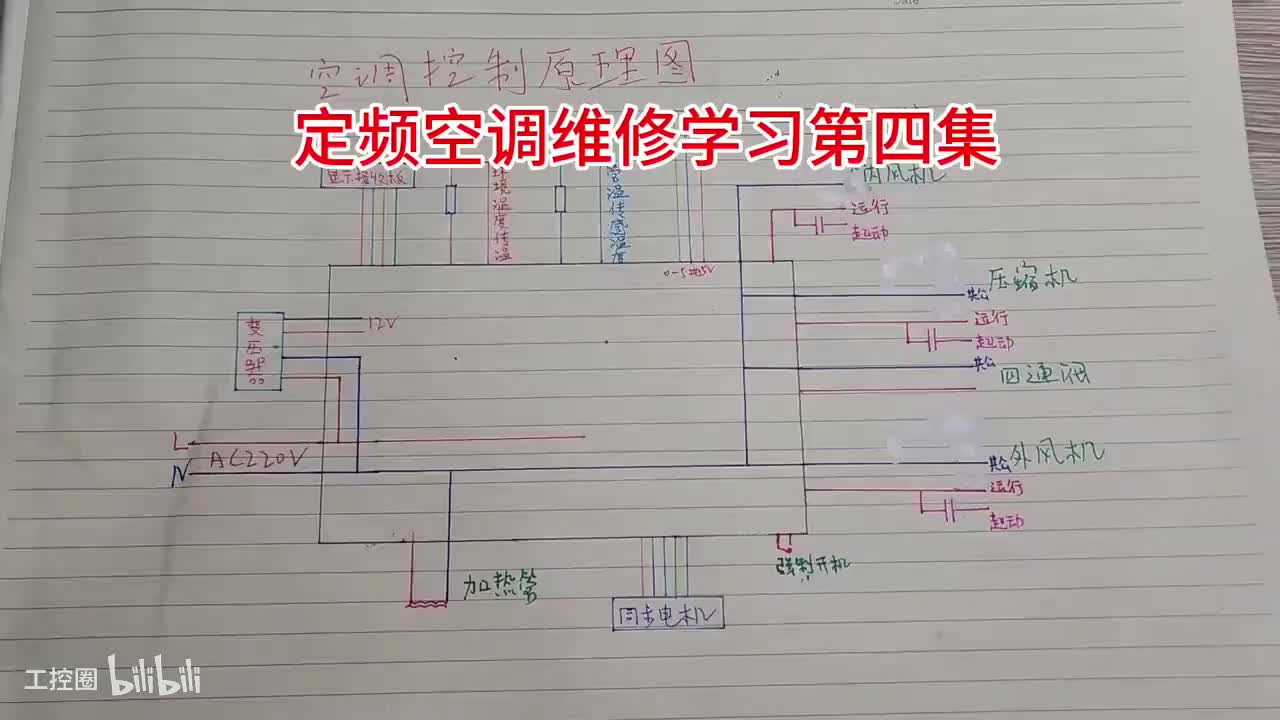 Date
空调控制原理图
定频空调维修学习第四集
显示接收板
环境温度传温
管温传感温度
0-5 地 5V
内风机
运行
起动
公共 压缩机
运行
起动
公共 四通阀
变压器
12V
L
AC220V
N
公共 外风机
运行
起动
加热管
强制开机
同步电机
工控圈 bilibili